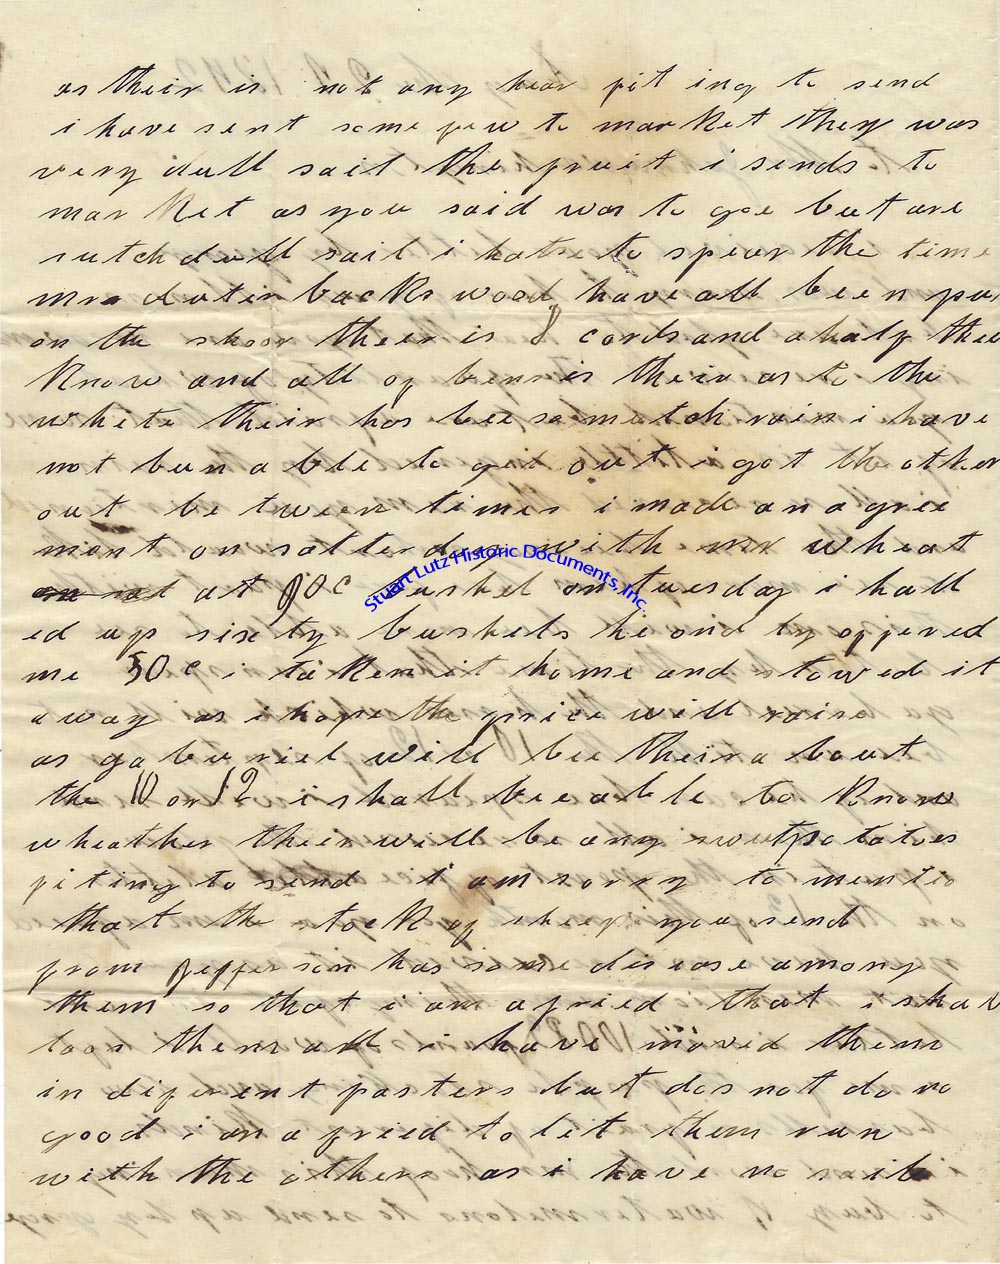 as their is not any hear fit ing to send
i have sent some few to market they was
very dull sail the fruit i sends to
mar ket as you said was to goe but are
sutch dull sail i hatse to spear the time
mrs dutin backs wood have all been put
on the shoor theer is 8 cords and a half thee
know and all of benn is their as to the
white their has bee so mutch rain i have
not bun able to get out i got the other
out be tween times i made an agree
ment on satterday with mr wheat
at 90c bushel on tuesday i hall
ed up sixty bushels he ondly offered
me 50c i taken it home and stowed it
away as i hope the price will raise
as gaburiel will bee their a bout
the 10 or 12 i shall bee able to know
wheather their will be any swutpotatoes
fiting to send i am sorry to mentio
that the stock of sheep you send
from jefferson has some disease among
them so that i am afried that i shal
loos them all i have moved them
in diferent pasters but dos not do no
good i am afried to let them run
with the others as i have no sail
Stuart Lutz Historic Documents, Inc.